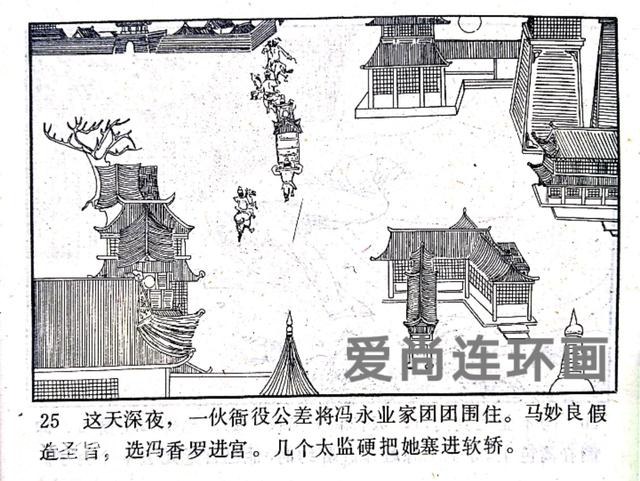 爱尚连环画
25 这天深夜，一伙衙役公差将冯永业家团团围住。马妙良假
造圣旨，选冯香罗进宫。几个太监硬把她塞进软轿。